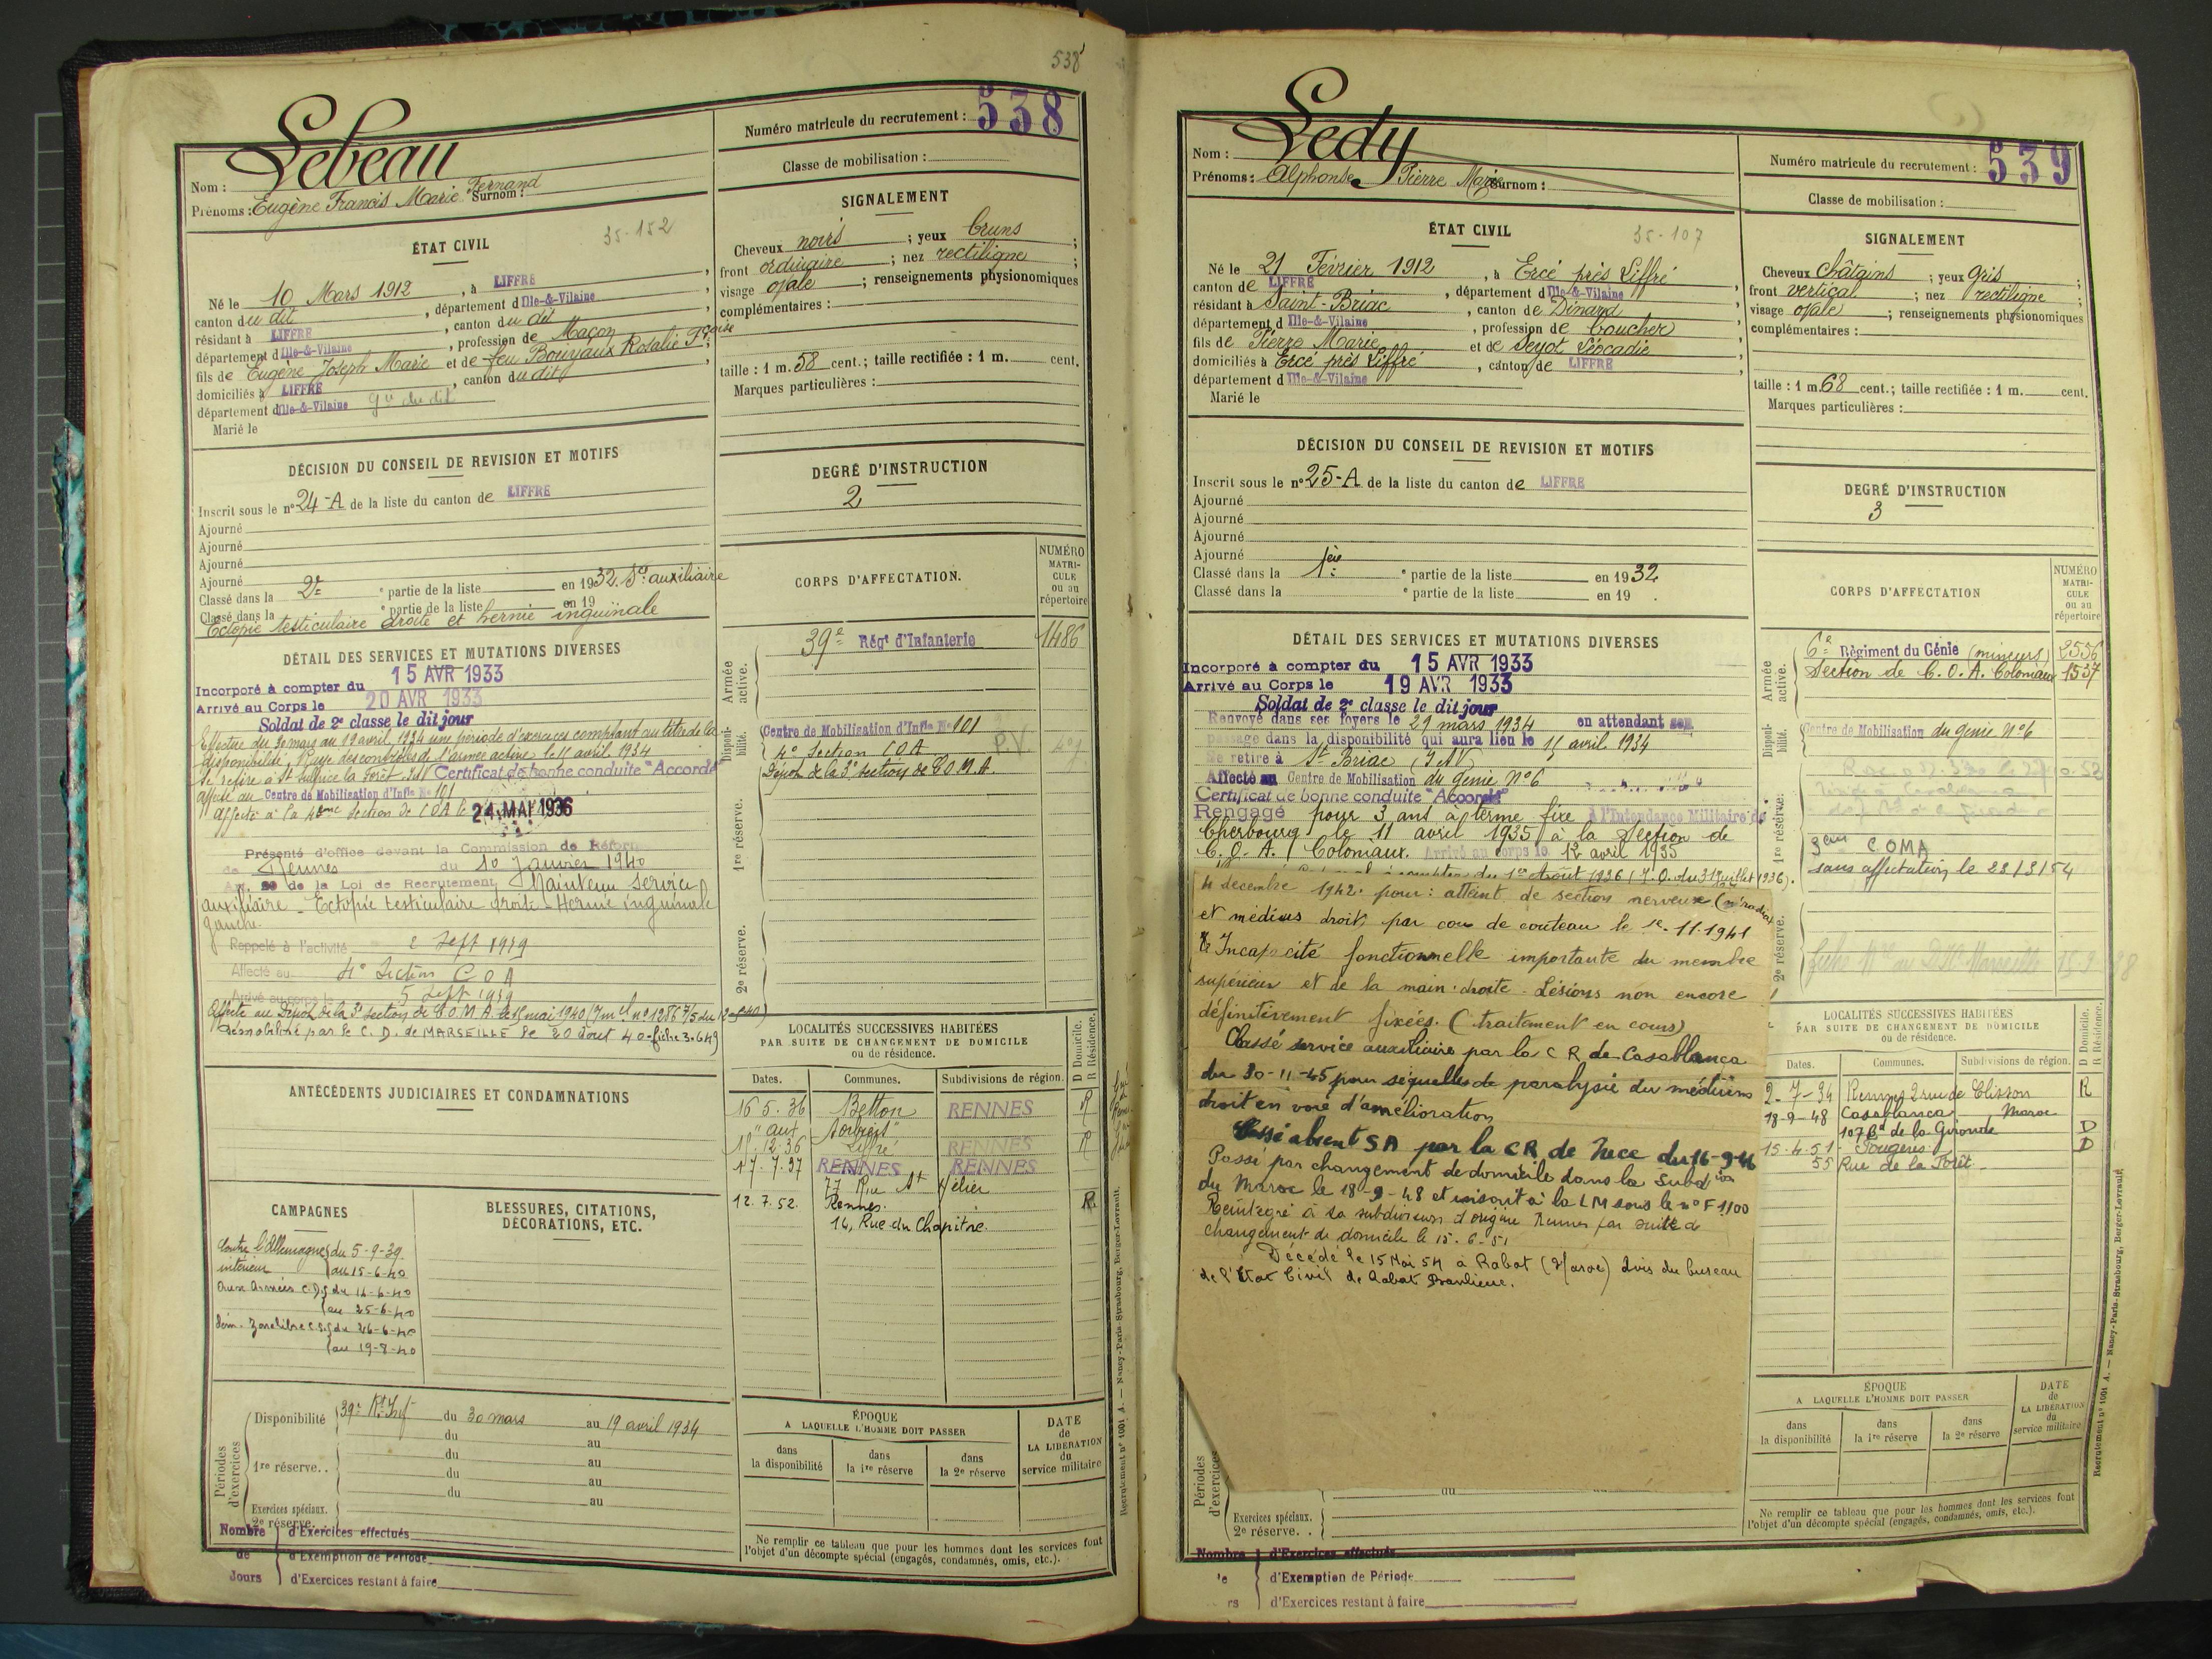 538
Lebeau
Nom :
Prénoms : Eugène Francis Marie Fernand Surnom :
Numéro matricule du recrutement : 538
Classe de mobilisation :
ÉTAT CIVIL
35-152
Né le 10 Mars 1912, à LIFFRÉ,
canton du dit, département d'Ille-&-Vilaine,
résidant à LIFFRÉ, canton du dit
département d'Ille-&-Vilaine, profession de Maçon
fils de Eugène Joseph Marie et de feu Bouvaux Rosalie Fçoise
domiciliés à LIFFRÉ, canton du dit,
département d'Ille-&-Vilaine
Marié le
SIGNALEMENT
Cheveux noirs ; yeux bruns ;
front ordinaire ; nez rectiligne ;
visage ovale ; renseignements physionomiques
complémentaires :
taille : 1 m. 58 cent.; taille rectifiée : 1 m. cent.
Marques particulières :
DÉCISION DU CONSEIL DE REVISION ET MOTIFS
Inscrit sous le n° 24-A de la liste du canton de LIFFRÉ
Ajourné
Ajourné
Ajourné
Ajourné
Classé dans la 2e partie de la liste en 1932. Sce auxiliaire
Classé dans la e partie de la liste en 19
Ectopie testiculaire droite et hernie inguinale
DEGRÉ D'INSTRUCTION
2
DÉTAIL DES SERVICES ET MUTATIONS DIVERSES
Incorporé à compter du 15 AVR 1933
Arrivé au Corps le 20 AVR 1933
Soldat de 2e classe le dit jour
Effectue du 30 mars au 19 avril 1934 une période d'exercices comptant au titre de la
disponibilité. Rayé des contrôles de l'armée active le 15 avril 1934
Se retire à St Sulpice la Forêt I&V Certificat de bonne conduite "Accordé"
Affecté au Centre de Mobilisation d'Infie No 101
Affecté à la 4ème Section de COA le 24 MAI 1936
Présenté d'office devant la Commission de Réforme
de Rennes du 10 Janvier 1940
Art. 20 de la Loi de Recrutement Maintenu Service
auxiliaire - Ectopie testiculaire droite - Hernie inguinale
gauche.
Rappelé à l'activité 2 Sept 1939
Affecté au 4e Section COA
Arrivé au corps le 5 Sept 1939
Affecté au Dépôt de la 3e section de COMA le 15 mai 1940
Démobilisé par le C. D. de MARSEILLE le 20 août 40 - fiche 3.649
CORPS D'AFFECTATION.
NUMÉRO MATRICULE ou au répertoire
Armée active.
39e Régt d'Infanterie 1486
Disponibilité.
Centre de Mobilisation d'Infie No 101
4e Section COA
Dépôt de la 3e section de C.O.M.A.
1re réserve.
2e réserve.
ANTÉCÉDENTS JUDICIAIRES ET CONDAMNATIONS
LOCALITÉS SUCCESSIVES HABITÉES
PAR SUITE DE CHANGEMENT DE DOMICILE
ou de résidence.
D Domicile.
R Résidence.
Dates. Communes. Subdivisions de région.
16 5. 36 Betton RENNES R
"aux
12.36 Liffré RENNES R
17. 7. 37 RENNES RENNES
77 Rue St Hélier
12. 7. 52. Rennes. R
14, Rue du Chapitre
CAMPAGNES
Contre l'Allemagne du 5-9-39
intérieur au 15-6-40
Aux Armées C.D. du 16-6-40
au 25-6-40
Sém. Zone libre C.S. du 26-6-40
au 19-8-40
BLESSURES, CITATIONS,
DÉCORATIONS, ETC.
Périodes d'exercices
Disponibilité 39e Rt Inf du 30 mars au 19 avril 1934
du au
1re réserve.. du au
du au
du au
Exercices spéciaux.
2e réserve. .
Nombre de Jours
d'Exercices effectués
d'Exemption de Période
d'Exercices restant à faire
ÉPOQUE
A LAQUELLE L'HOMME DOIT PASSER
dans la disponibilité
dans la 1re réserve
dans la 2e réserve
DATE de LA LIBÉRATION du service militaire
Ne remplir ce tableau que pour les hommes dont les services font
l'objet d'un décompte spécial (engagés, condamnés, omis, etc.).
Recrutement n° 1001 A. — Nancy-Paris-Strasbourg, Berger-Levrault.
Ledy
Nom :
Prénoms : Alphonse Pierre Marie Surnom :
Numéro matricule du recrutement : 539
Classe de mobilisation :
ÉTAT CIVIL
35-107
Né le 21 Février 1912, à Ercé près Liffré
canton de LIFFRÉ, département d'Ille-&-Vilaine,
résidant à Saint-Briac, canton de Dinard
département d'Ille-&-Vilaine, profession de boucher
fils de Pierre Marie et de Deyot Léocadie
domiciliés à Ercé près Liffré, canton de LIFFRÉ,
département d'Ille-&-Vilaine
Marié le
SIGNALEMENT
Cheveux châtains ; yeux gris ;
front vertical ; nez rectiligne ;
visage ovale ; renseignements physionomiques
complémentaires :
taille : 1 m. 68 cent.; taille rectifiée : 1 m. cent.
Marques particulières :
DÉCISION DU CONSEIL DE REVISION ET MOTIFS
Inscrit sous le n° 25-A de la liste du canton de LIFFRÉ
Ajourné
Ajourné
Ajourné
Ajourné
Classé dans la 1ère partie de la liste en 1932
Classé dans la e partie de la liste en 19 .
DEGRÉ D'INSTRUCTION
3
DÉTAIL DES SERVICES ET MUTATIONS DIVERSES
Incorporé à compter du 15 AVR 1933
Arrivé au Corps le 19 AVR 1933
Soldat de 2e classe le dit jour
Renvoyé dans ses foyers le 29 mars 1934 en attendant son
passage dans la disponibilité qui aura lieu le 15 avril 1934
Se retire à St Briac (I&V)
Affecté au Centre de Mobilisation du génie N° 6
Certificat de bonne conduite "Accordé"
Rengagé pour 3 ans à terme fixe à l'Intendance Militaire de
Cherbourg le 11 avril 1935 à la Section de
C.O.A. Coloniaux. Arrivé au corps le 12 avril 1935
à compter du 1er Août 1936 (J.O. du 31 juillet 1936).
4 decembre 1942. pour : atteint de section nerveuse
et médius droit, par cou de couteau le 1e-11-1941
Incapacité fonctionnelle importante du membre
supérieur et de la main droite. Lésions non encore
définitivement fixées. (traitement en cours)
Classé service auxiliaire par la C R de Casablanca
du 30-11-45 pour séquelles de paralysie du médium
droit en voie d'amélioration
Classé absent SA par la CR de Nice du 16-9-46
Passé par changement de domicile dans la Subdion
du Maroc le 18-9-48 et inscrit à la LM sous le n° F 1100
Réintégré à sa subdivision d'origine Rennes par suite de
changement de domicile le 15.6.51
Décédé le 15 Mai 54 à Rabat (Maroc) Avis du bureau
de l'Etat Civil de Rabat Banlieue.
CORPS D'AFFECTATION
NUMÉRO MATRICULE ou au répertoire
Armée active.
6e Régiment du Génie (mineurs) 2536
Section de C.O.A. Coloniaux 1537
Disponibilité.
Centre de Mobilisation du genie N° 6
1re réserve.
3eme COMA
sans affectation le 23/3/54
2e réserve.
LOCALITÉS SUCCESSIVES HABITÉES
PAR SUITE DE CHANGEMENT DE DOMICILE
ou de résidence.
D Domicile.
R Résidence.
Dates. Communes. Subdivisions de région.
2-7-34 Rennes 2 rue de Clisson R
18-9-48 Casablanca Maroc
107 Bd de la Gironde D
15-4-51 Fougères D
55 Rue de la Forêt
ÉPOQUE
A LAQUELLE L'HOMME DOIT PASSER
dans la disponibilité
dans la 1re réserve
dans la 2e réserve
DATE de LA LIBÉRATION du service militaire
Périodes d'exercices
au
Exercices spéciaux.
2e réserve. .
Nombre
d'Exercices effectués
d'Exemption de Période
d'Exercices restant à faire
Ne remplir ce tableau que pour les hommes dont les services font
l'objet d'un décompte spécial (engagés, condamnés, omis, etc.).
Recrutement n° 1001 A. — Nancy-Paris-Strasbourg, Berger-Levrault.